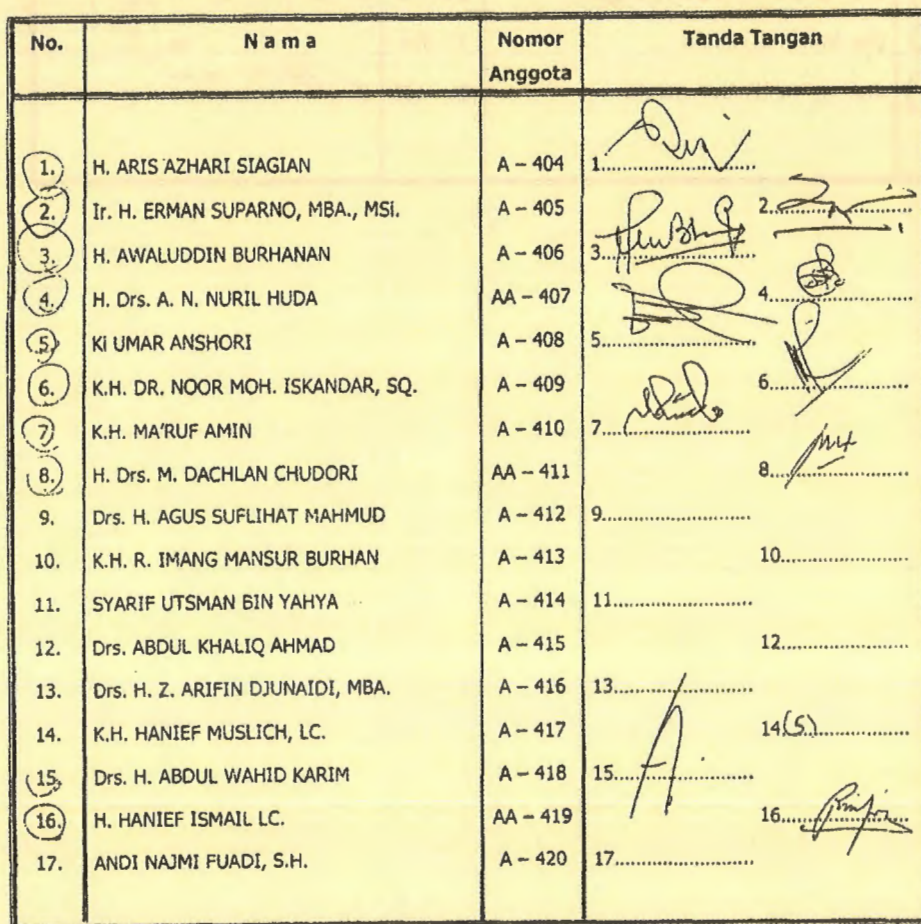 No. Nama Nomor Anggota Tanda Tangan
1. H. ARIS AZHARI SIAGIAN A – 404 1.
2. Ir. H. ERMAN SUPARNO, MBA., MSi. A – 405 2.
3. H. AWALUDDIN BURHANAN A – 406 3.
4. H. Drs. A. N. NURIL HUDA AA – 407 4.
5. Ki UMAR ANSHORI A – 408 5.
6. K.H. DR. NOOR MOH. ISKANDAR, SQ. A – 409 6.
7. K.H. MA'RUF AMIN A – 410 7.
8. H. Drs. M. DACHLAN CHUDORI AA – 411 8.
9. Drs. H. AGUS SUFLIHAT MAHMUD A – 412 9.
10. K.H. R. IMANG MANSUR BURHAN A – 413 10.
11. SYARIF UTSMAN BIN YAHYA A – 414 11.
12. Drs. ABDUL KHALIQ AHMAD A – 415 12.
13. Drs. H. Z. ARIFIN DJUNAIDI, MBA. A – 416 13.
14. K.H. HANIEF MUSLICH, LC. A – 417 14 (S)
15. Drs. H. ABDUL WAHID KARIM A – 418 15.
16. H. HANIEF ISMAIL LC. AA – 419 16.
17. ANDI NAJMI FUADI, S.H. A – 420 17.